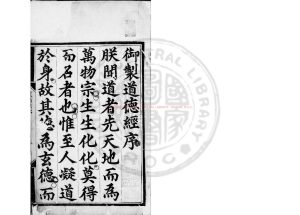 御製道德經序
朕聞道者先天地而爲
萬物宗生生化化莫得
而名者也惟至人凝道
於身故其為玄德而